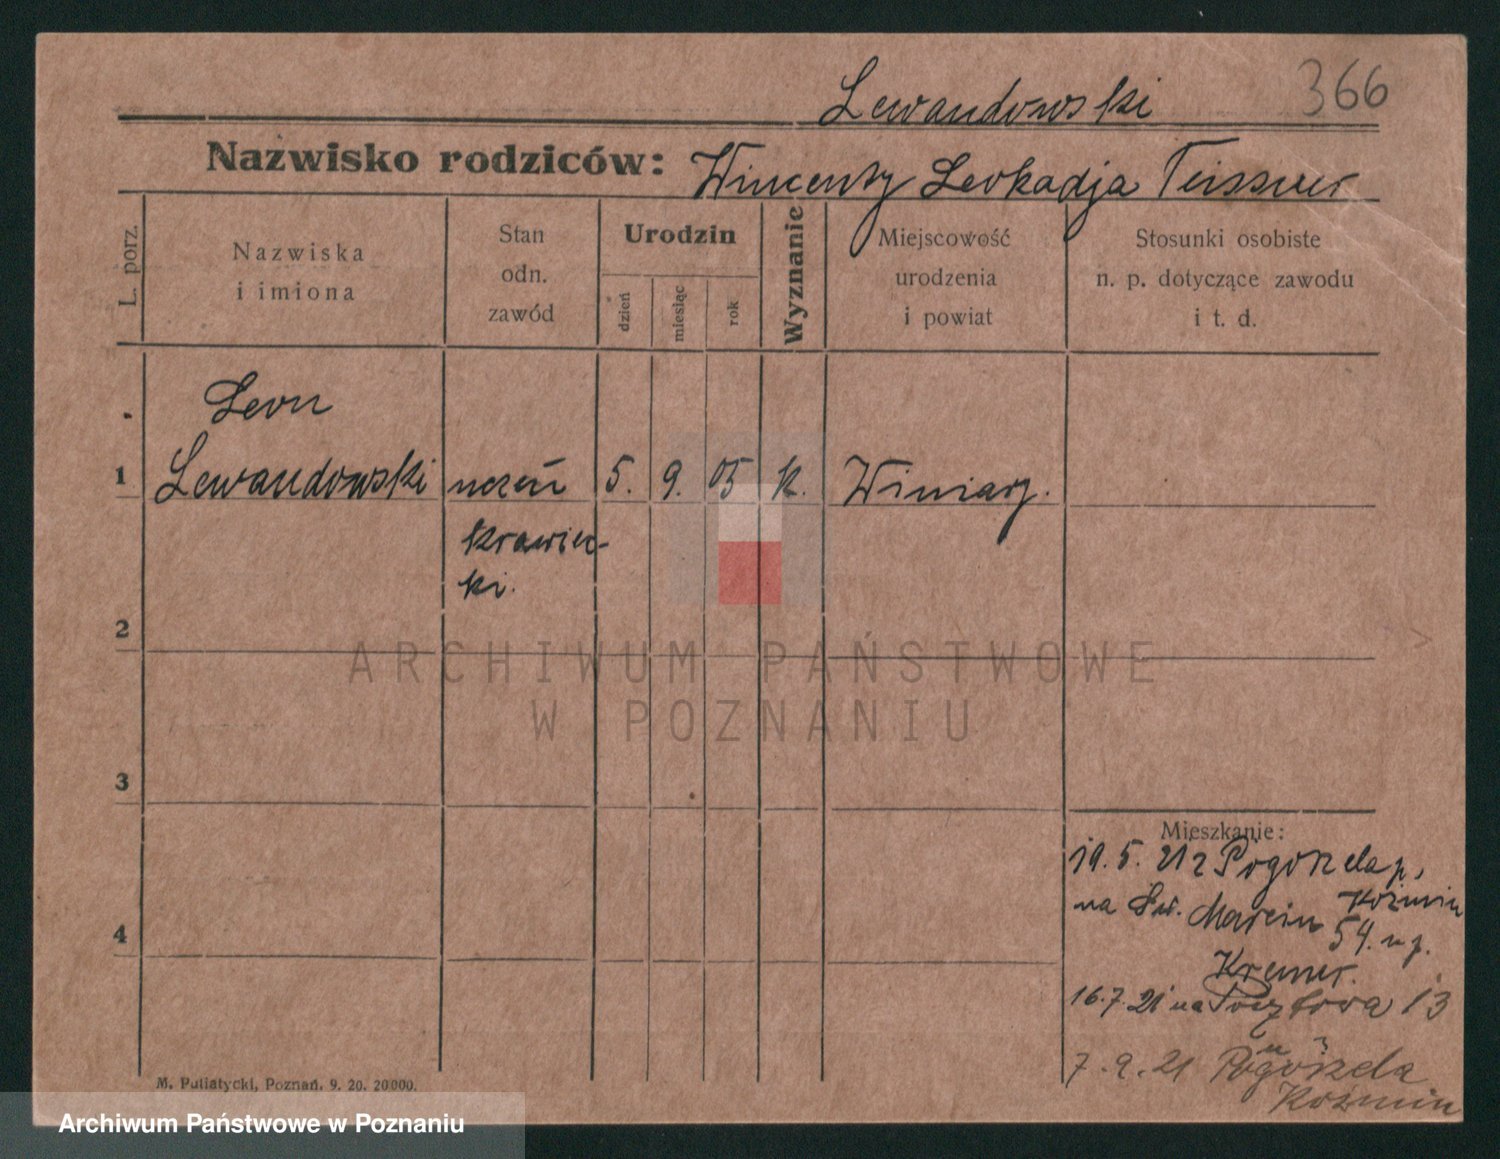 366
Lewandowski
Nazwisko rodziców: Wincenty Leokadja Teissner
L. porz.
Nazwiska
i imiona
Stan
odn.
zawód
Urodzin
dzień
miesiąc
rok
Wyznanie
Miejscowość
urodzenia
i powiat
Stosunki osobiste
n. p. dotyczące zawodu
i t. d.
Leon
1 Lewandowski uczeń 5. 9. 05 k. Winiary.
krawiec-
ki.
2
ARCHIWUM PAŃSTWOWE
W POZNANIU
3
Mieszkanie:
19. 5. 21 z Pogorzela p,
Koźmin
na Św. Marcin 54. u p.
4
Kremer.
16.7.21 na Pocztowa 13
7.9.21 Pogorzela
Koźmin
M. Putiatycki, Poznań. 9. 20. 20000.
Archiwum Państwowe w Poznaniu